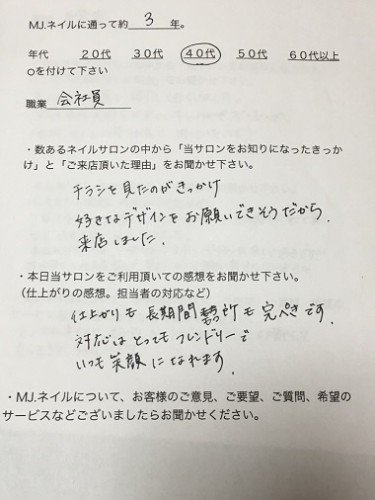 MJ.ネイルに通って約 3 年。
年代 20代 30代 40代 50代 60代以上
○を付けて下さい
職業 会社員
・数あるネイルサロンの中から「当サロンをお知りになったきっか
け」と「ご来店頂いた理由」をお聞かせ下さい。
チラシを見たのがきっかけ
好きなデザインをお願いできそうだから
来店しました.
・本日当サロンをご利用頂いての感想をお聞かせ下さい。
（仕上がりの感想。担当者の対応など）
仕上がりも 長期間 も 完ぺきです.
対応はとってもフレンドリーで
いつも笑顔になれます.
・MJ.ネイルについて、お客様のご意見、ご要望、ご質問、希望の
サービスなどございましたらお聞かせください。